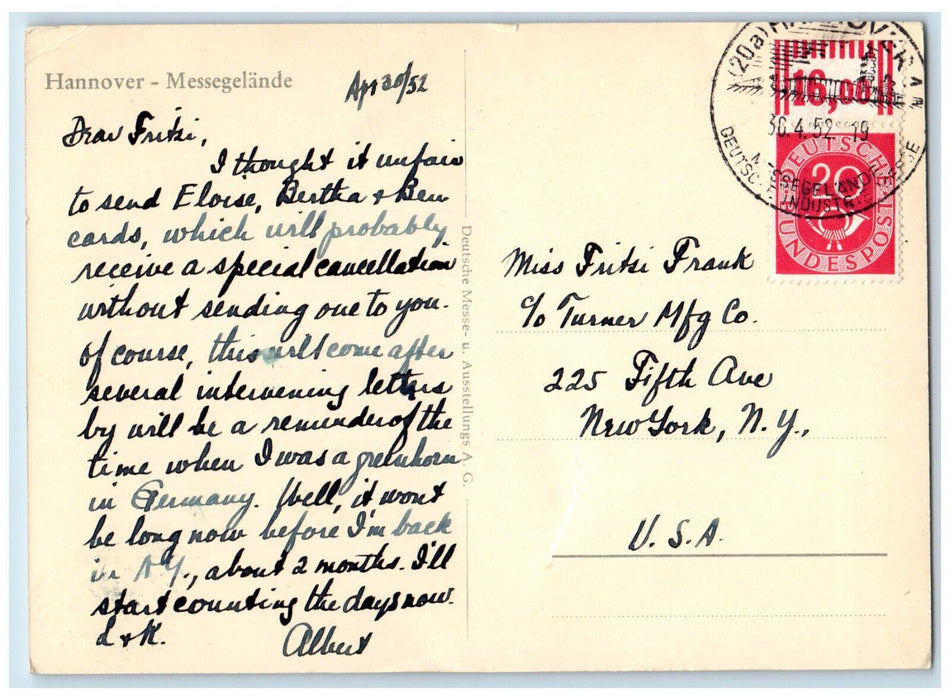 Hannover - Messegelände
Apr 30/52
Dear Fritzi,
I thought it unfair
to send Eloise, Bertha & Ben
cards, which will probably
receive a special cancellation
without sending one to you.
Of course, this will come after
several intervening letters
by will be a reminder of the
time when I was a greenhorn
in Germany. Well, it won't
be long now before I'm back
in N.Y., about 2 months. I'll
start counting the days now.
L & K.
Albert
Deutsche Messe- u. Ausstellungs A. G.
(20a) HANNOVER
16,00
30.4.52. 19
MESSEGELÄNDE
DEUTSCHE INDUSTRIE
DEUTSCHE
20
BUNDESPOST
Miss Fritzi Frank
c/o Turner Mfg Co.
225 Fifth Ave
New York, N.Y.,
U.S.A.